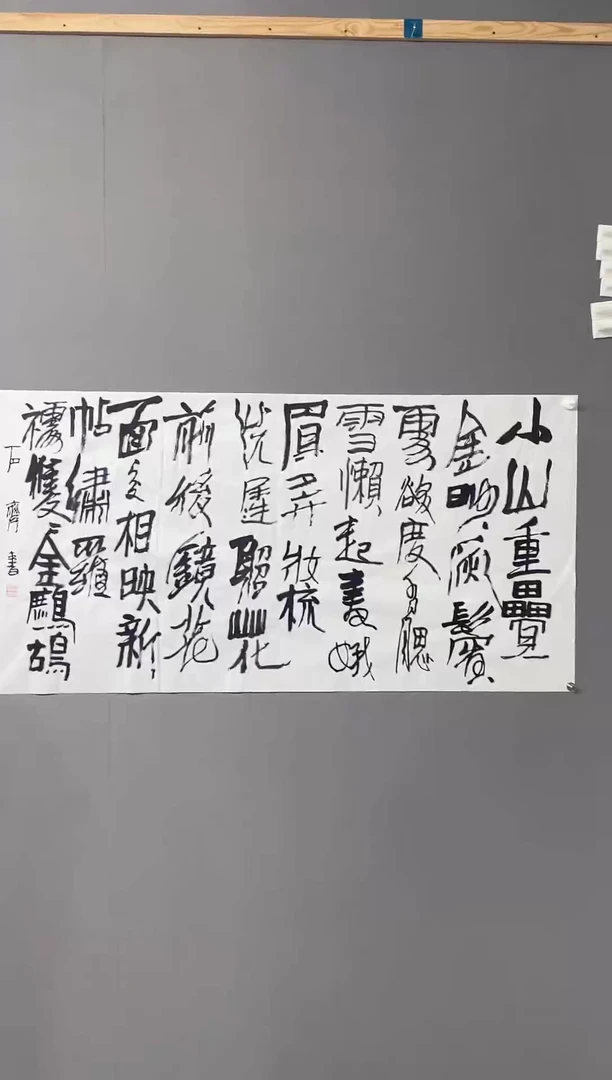 小山重疊
金明滅鬢
雲欲度香腮
雪懶起畫娥
眉弄妝梳
洗遲照花
前後鏡花
面交相映新
帖繡羅
襦雙〻金鷓鴣
齊書